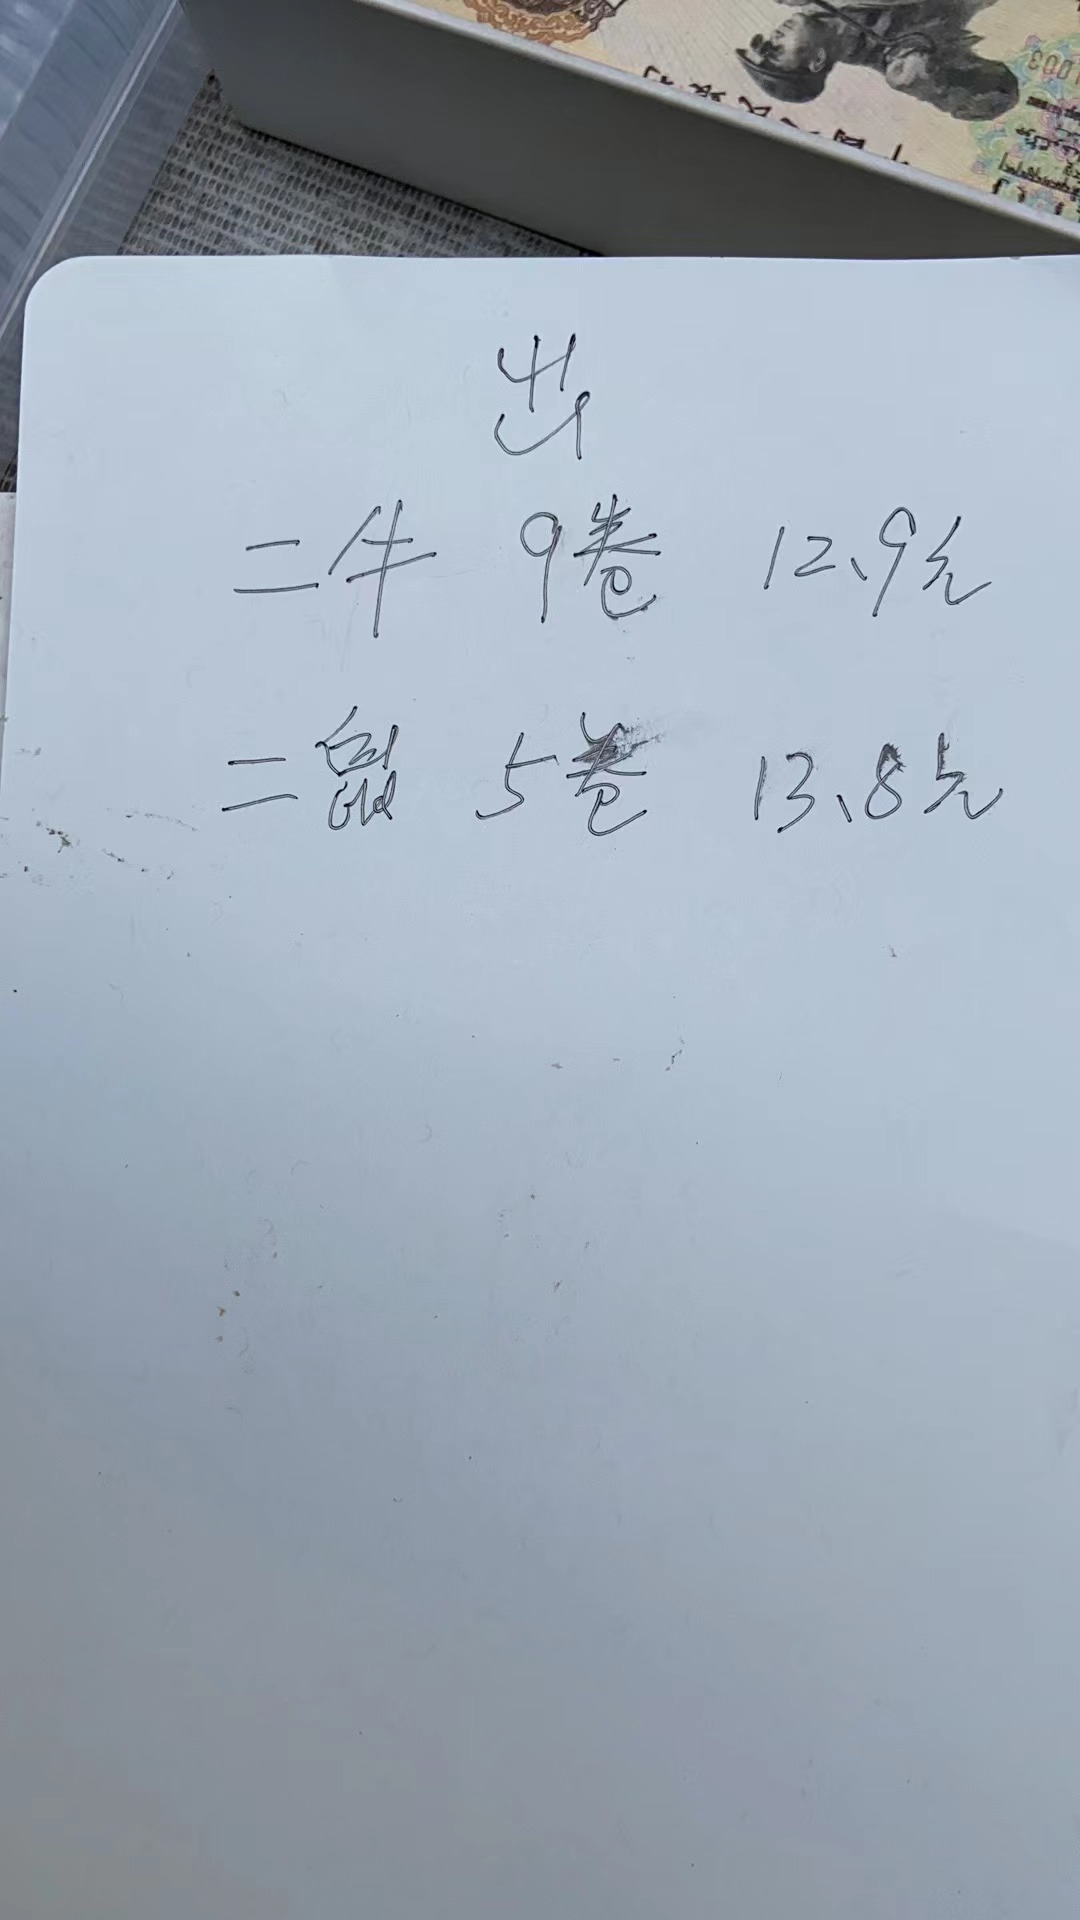 出
二牛 9卷 12、9元
二鼠 5卷 13、8元